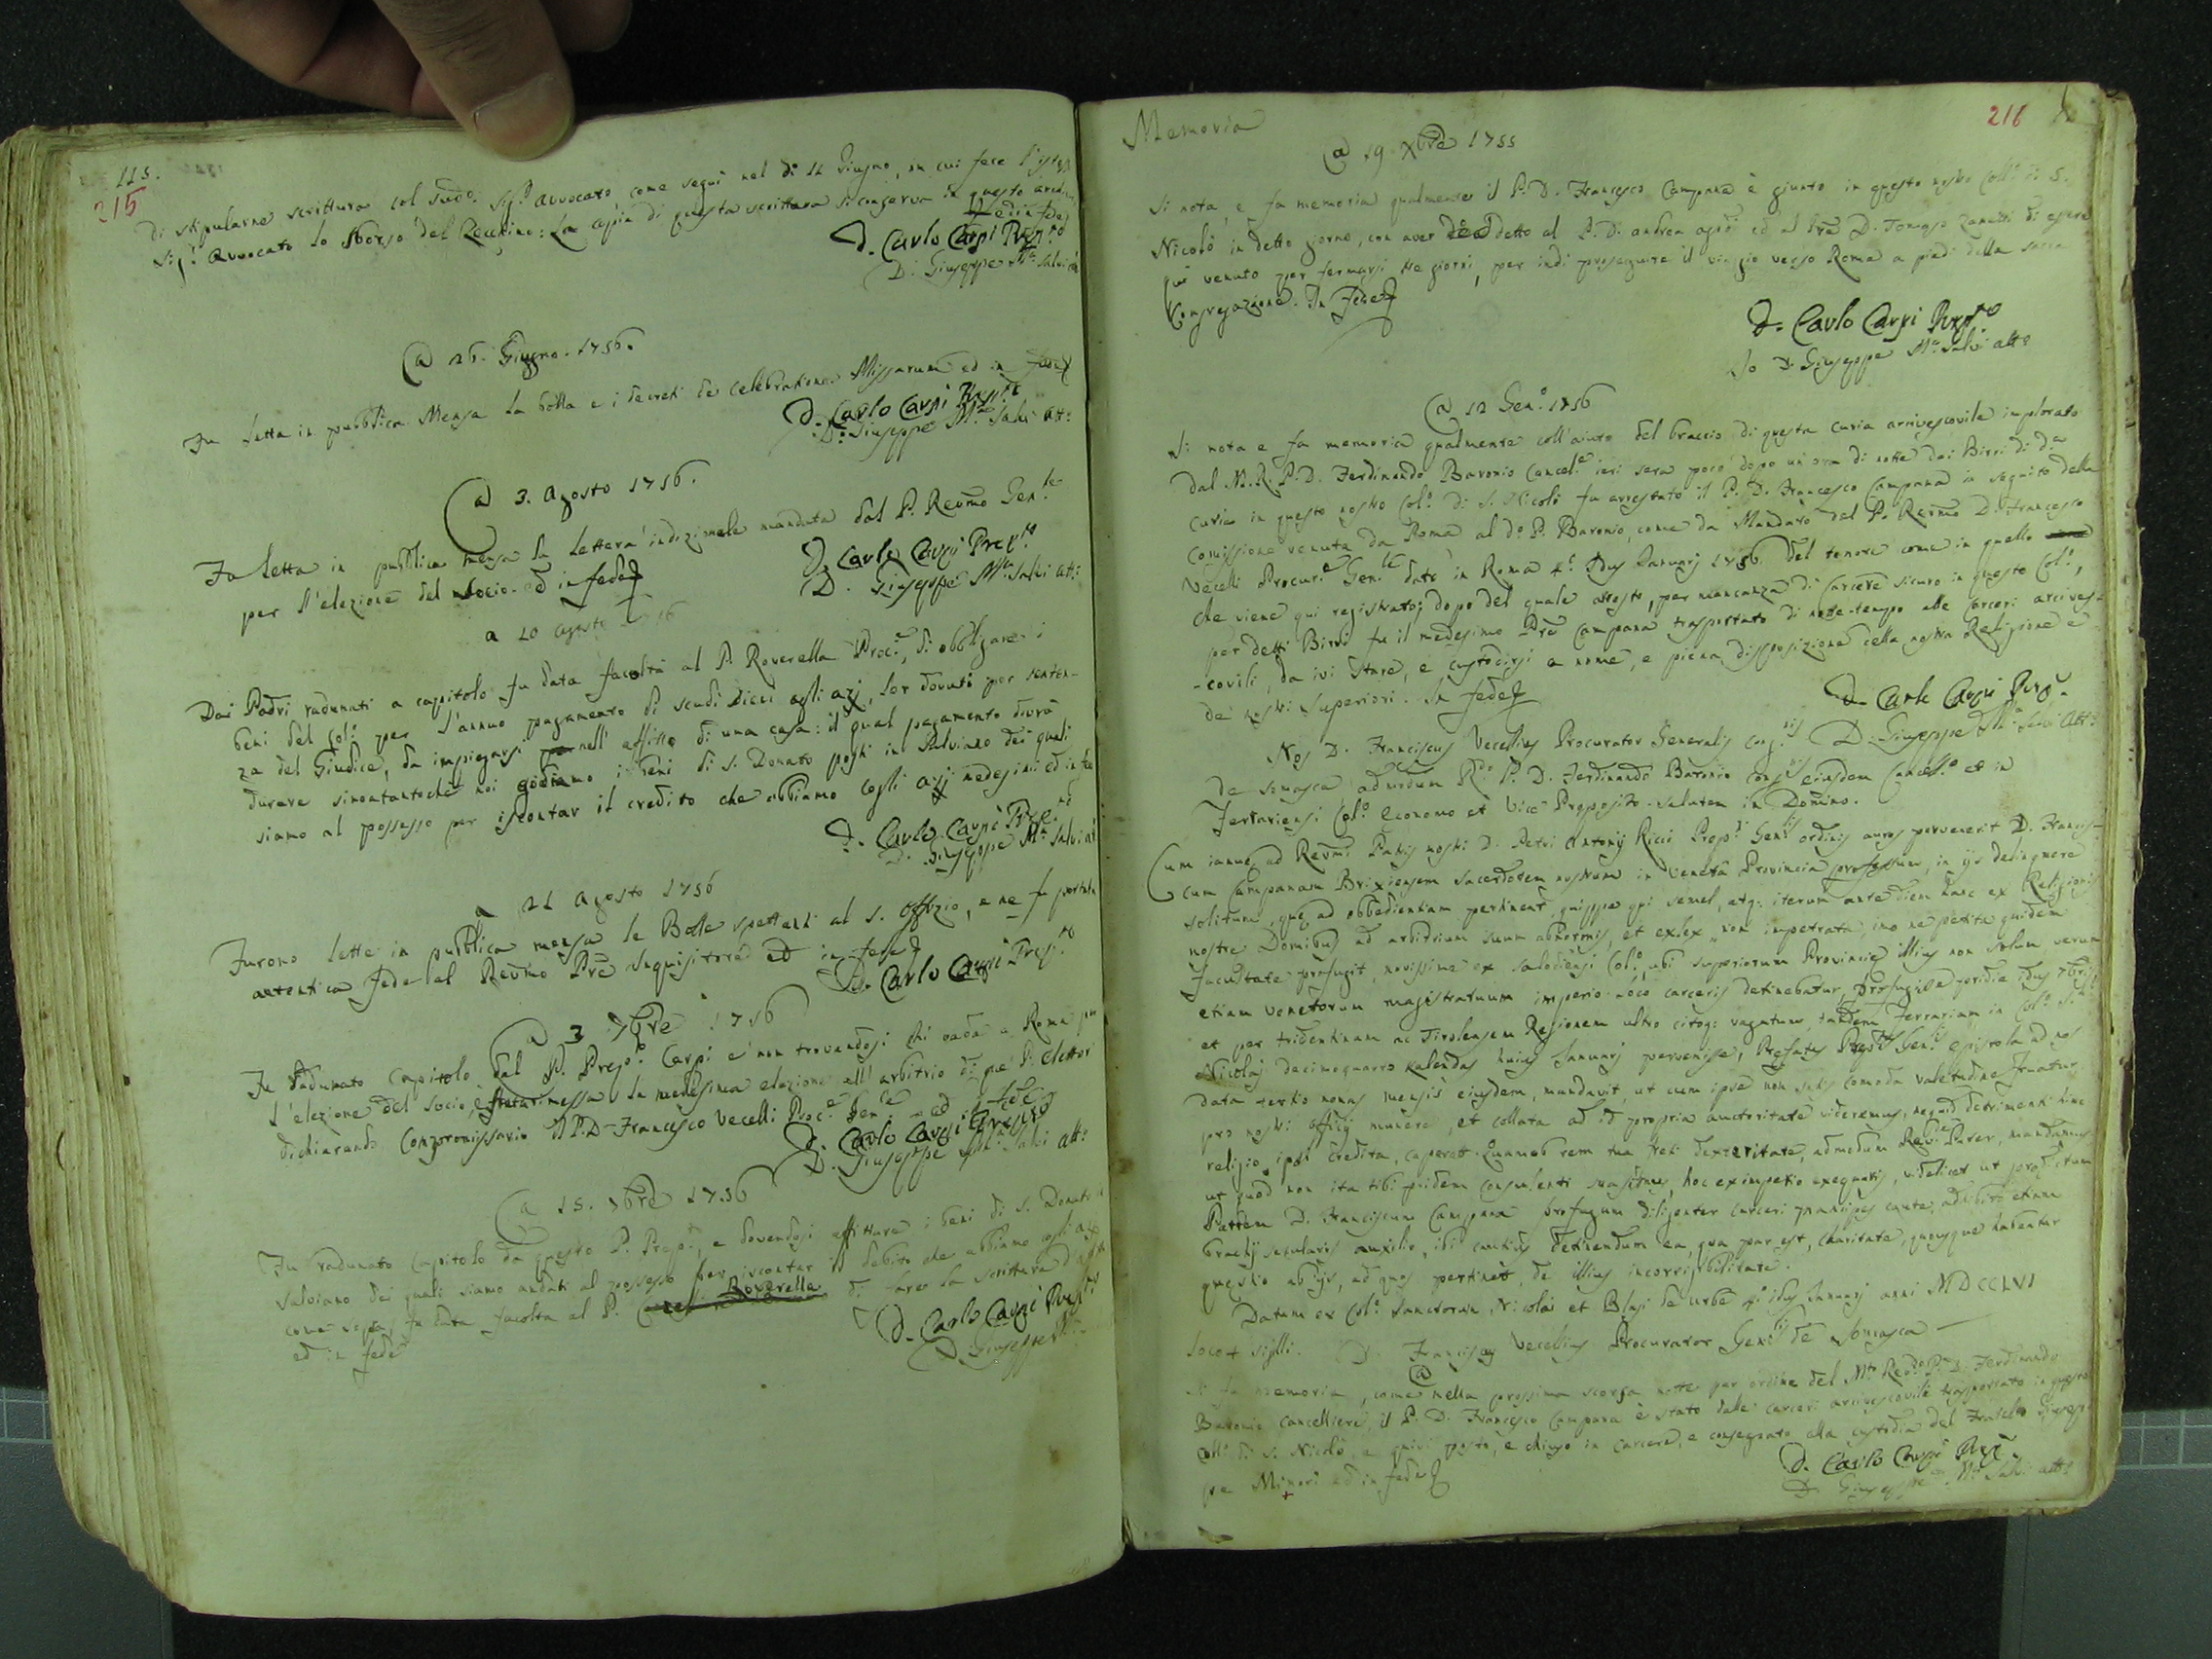 115.
215
di stipularne scrittura col sudo. Sigr. Avvocato come seguì nel dì 12 Giugno, in cui fece l'istesso
Sigr. Avvocato lo sborso del Zecchino: La copia di questa scrittura si conserva in questo archivio
ed in fede
D. Carlo Carpi Prepto
D. Giuseppe Ma. Salvi
@ 26. Giugno. 1756.
Fu letta in pubblica Mensa la bolla e i decreti de celebratione Missarum ed in fede
D. Carlo Carpi Prepto
D. Giuseppe Ma. Salvi att:
@ 3. Agosto 1756.
Fu letta in pubblica mensa la lettera indizionale mandata dal P. Revmo Genle
per l'elezione del socio ed in fede
D. Carlo Carpi Prepto
D. Giuseppe Ma. Salvi att:
a 10 agosto 1756
Dai Padri radunati a capitolo fu data facoltà al P. Roverella Proce, di obbligare i
beni del Colo per l'annuo pagamento di scudi dieci agli azj, lor dovuti per senten-
za del Giudice, da impiegarsi nell' affitto di una casa: il qual pagamento dovrà
durare sinoatantochè noi godiamo i beni di S. Donato posti in Salviano dei quali
siamo al possesso per iscontar il credito che abbiamo cogli azj medesimi ed in fe
D. Carlo Carpi Prepto
D. Giuseppe Ma. Salvi at
a 21 Agosto 1756
Furono lette in pubblica mensa le Bolle spettanti al S. Offizio, e ne fu portata
autentica fede al Revmo Pre Inquisitore ed in fede
D. Carlo Carpi Prepto
@ 3 7bre 1756
Fu radunato Capitolo dal P. Prepo. Carpi e non trovandosi chi vada a Roma per
l'elezione del socio, messa la medesima elezione all' arbitrio di que' P. elettori
dichiarando Compromissario il P. D. Francesco Vecelli Proce Gene - ed in fede
D. Carlo Carpi Prepto
D. Giuseppe Ma. Salvi att:
@ 15. 7bre 1756
Fu radunato Capitolo da questo P. Prepo, e dovendosi affittare i beni di S. Donato in
Salviano dei quali siamo andati al possesso per iscontar il debito che abbiamo cogli azj
come sopra, fu data facoltà al P. Roverella di fare la scrittura d'affitto
ed in fede
D. Carlo Carpi Prepto
D. Giuseppe Ma.
Memoria
216
@ 19 Xbre 1755
Si nota, e fa memoria qualmente il P. D. Francesco Campana è giunto in questo nostro Collo di S.
Nicolò in detto giorno, con aver detto al P. D. Andrea ed al Pre D. Tomaso Zanetti di essere
qui venuto per fermarsi tre giorni, per indi proseguire il viaggio verso Roma a piedi della sacra
Congregazione. In fede
D. Carlo Carpi Prepto
Io D. Giuseppe Ma. Salvi atto
@ 12 Geno. 1756
Si nota e fa memoria qualmente coll'aiuto del braccio di questa Curia arcivescovile implorato
dal M. R. P. D. Ferdinando Baronio Cancele ieri sera poco dopo un'ora di notte dai Birri di da
Curia in questo nostro Colo. di S. Nicolò fu arrestato il P. D. Francesco Campana in seguito della
Comissione venuta da Roma al do. P. Baronio, come da Mandato del P. Revmo D. Francesco
Vecelli Procure Genle dato in Roma 4o. Idus Januarj 1756. del tenore come in quello
che viene qui registrato; dopo del quale arresto, per mancanza di carcere sicuro in questo Colo,
per detti Birri fu il medesimo Pre Campana trasportato di notte-tempo alle Carceri arcives-
-covili, da ivi stare, e custodirsi a nome, e piena disposizione della nostra Religione e
de' nostri Superiori. In fede
D. Carlo Carpi Prepo
D. Giuseppe Ma. Salvi att:
Nos D. Franciscus Vecellius Procurator Generalis Congnis
de Somasca admodum Rdo P. D. Ferdinando Baronio Congnis ejusdem Cancelo et in
Ferrariensi Colo. Economo et Vice-Preposito salutem in Domino.
Cum ianuas ad Revmi Patris nostri D. Petri Antonij Ricci Prepti Genlis ordinis aures pervenerit D. Francis-
cum Campanam Brixiensem sacerdotem nostrum in Veneta Provincia professum, in ijs delinquere
solitum, quæ ad obbedientiam pertinent, quippe qui semel, atq: iterum ante diem hanc ex Religionis
nostre Domibus ad arbitrium suum abnormis, et exlex, non impetrata, imo ne petita quidem
facultate profugit, novissime ex salodiensi Colo, ubi superiorum Provincie illius non solum verum
etiam venetorum magistratuum imperio loco carceris detinebatur, profugisse pridie Idus 7bris
et per tridentinam ac Tirolensem Regionem ultro citroq: vagatum, tandem Ferrariam in Colo. Sti
Nicolaj decimoquarto Kalendas huius Januarj pervenisse, Prefatus Preptus Genlis epistola ad nos
data tertio nonas mensis eiusdem, mandavit, ut cum ipse non satis comoda valetudine fruatur
pro nostri officij munere, et collata ad id propria auctoritate videremus, nequid detrimenti hinc
religio ipsi credita, caperet. Quamob rem tua freti dexteritate, admodum Revde Pater, mandamus
ut quod non ita tibi pridem consulenti suasimus, hoc ex imperio exequaris, videlicet ut predictum
Patrem D. Franciscum Campana profugum diligenter carceri mancipes caute, adhibito etiam
brachij secularis auxilio, ibi cautius detinendum ea, qua par est, charitate, quousque habentur
questio ab ijs, ad quos pertinet, de illius incorrigibilitate.
Datum ex Colo. Sanctorum Nicolai et Blasj de Urbe 4o idus Januarj anni MDCCLVI
Loco + sigilli. D. Franciscus Vecellius Procurator Genlis de Somasca
@
Si fa memoria, come nella prossima scorsa notte per ordine del Mto Revdo P. D. Ferdinando
Baronio Cancelliere, il P. D. Francesco Campana è stato dalle carceri arcivescovili trasportato in questo
Collo di S. Nicolò, e quivi posto, e chiuso in carcere, e consegnato alla custodia del Fratello Giusep-
pe Minori ed in fede
D. Carlo Carpi Prepo
D. Giuseppe Ma. Salvi atto